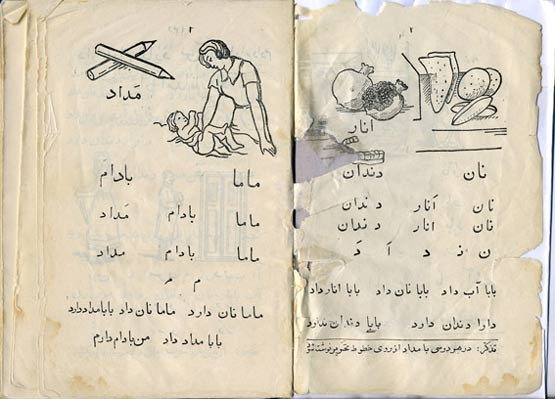 ۲
انار
نان دندان
نان انار دندان
نان انار دندان
ن ند د آ دَ
بابا آب داد بابا نان داد بابا انار داد
دارا دندان دارد بابا دندان ندارد
تذکر: در هر درسی با مداد از روی خطوط
۳
مَداد
ماما بادام
ماما بادام مَداد
ماما بادام مداد
م مَ
ماما نان دارد ماما نان داد بابا مداد دارد
بابا مداد داد من بادام دارم